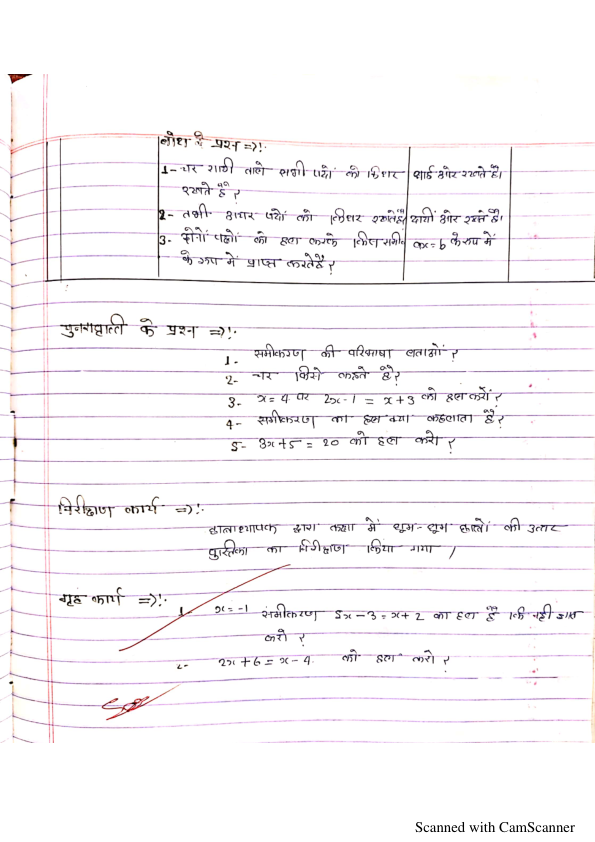 बोध के प्रश्न =>!.
1- चर राशी वाले सभी पदों को किधर
रखते है ?
बाई ओर रखते है।
2- सभी अचर पदों को किधर रखते है
दायीं ओर रखते है।
3- दोनों पक्षों को हल करके किस समी०
के रूप में प्राप्त करते है ?
ax = b के रूप में
पुनरावृात्ती के प्रश्न =>!.
1- समीकरण की परिभाषा बताओं ?
2- चर किसे कहते है ?
3- x = 4 पर 2x-1 = x+3 को हल करों ?
4- समीकरण का हल क्या कहलाता है ?
5- 3x+5 = 20 को हल करो ?
निरीक्षण कार्य =>!.
छात्राध्यापक द्वारा कक्षा में घूम-घूम छात्रों की उत्तर
पुस्तिका का निरीक्षण किया गया /
गृह कार्य =>!.
1. x = -1 समीकरण 5x-3 = x+2 का हल है कि नही ज्ञात
करो ?
2- 2x+6 = x-4. को हल करो ?
Scanned with CamScanner